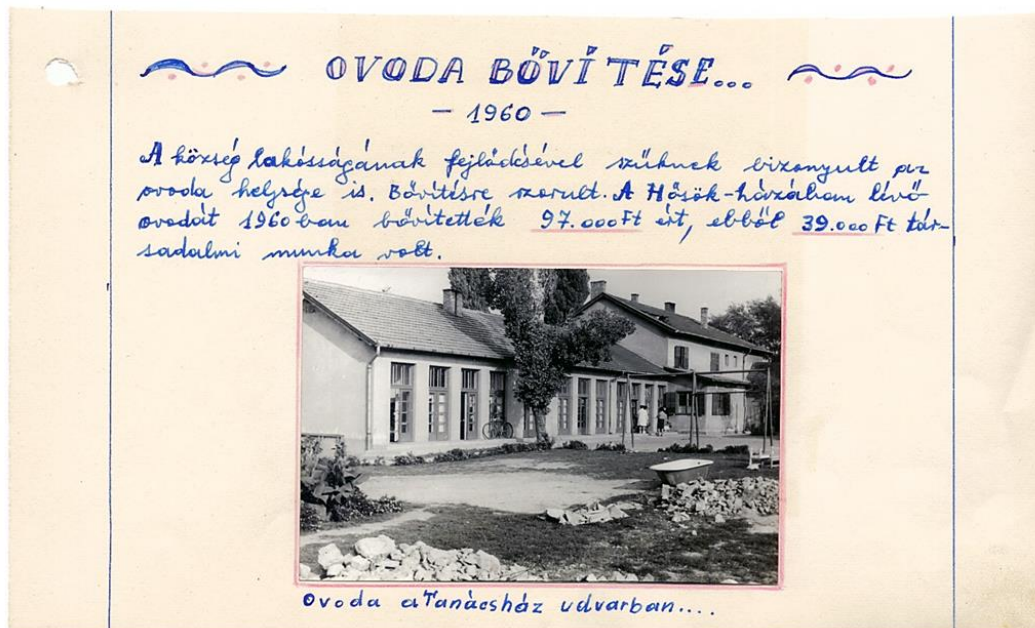 OVODA BŐVÍTÉSE...
— 1960 —
A község lakósságának fejlődésével szűknek bizonyult az
ovoda helysége is. Bővitésre szorult. A Hősök-házában lévő
ovodát 1960 ban bővitették 97.000 Ft ért, ebből 39.000 Ft tár-
sadalmi munka volt.
Ovoda a Tanácsház udvarban....